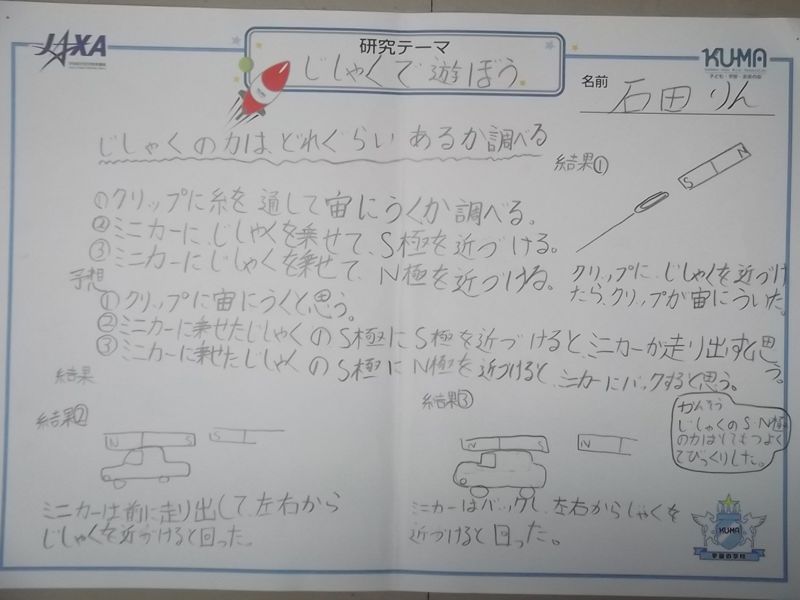 JAXA
研究テーマ
じしゃくで遊ぼう
KUMA
子ども・宇宙・未来の会
名前
石田りん
じしゃくの力は、どれぐらいあるか調べる
①クリップに糸を通して宙にうくか調べる。
②ミニカーに、じしゃくを乗せて、S極を近づける。
③ミニカーにじしゃくを乗せて、N極を近づける。
予想
①クリップに宙にうくと、思う。
②ミニカーに乗せたじしゃくのS極にS極を近づけると、ミニカーが走り出すと思う。
③ミニカーに乗せたじしゃくのS極にN極を近づけると、ミニカーにバックすると思う。
結果①
S N
クリップに、じしゃくを近づけ
たら、クリップが宙にういた。
結果
結果②
N S S
ミニカーは前に走り出して、左右から
じしゃくを近づけると回った。
結果③
N S N
ミニカーはバックし、左右からしゃくを
近づけると回った。
かんそう
じしゃくのS N極
の力はとてもつよく
てびっくりした。
KUMA
宇宙の学校